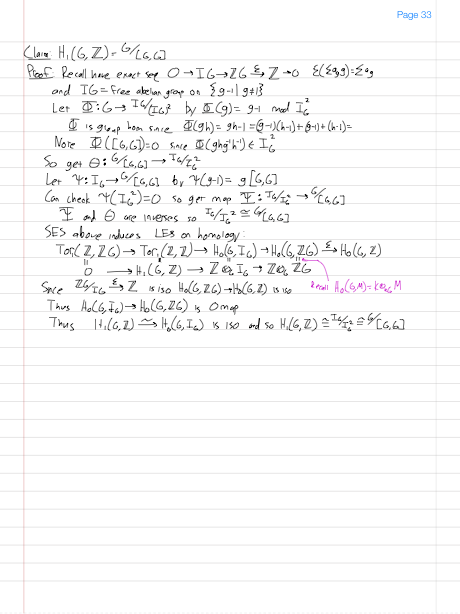 Page 33
Claim: H₁(G, ℤ) = G/[G,G]
Proof: Recall have exact seq 0 → IG → ℤG →^ε ℤ → 0 ε(Σ a_g g) = Σ a_g
and IG = Free abelian group on {g-1 | g≠1}
Let Φ: G → I_G/I_G² by Φ(g) = g-1 mod I_G²
Φ is group hom since Φ(gh) = gh-1 = (g-1)(h-1) + (g-1) + (h-1) =
Note Φ([G,G])=0 since Φ(ghg⁻¹h⁻¹) ∈ I_G²
So get Θ: G/[G,G] → I_G/I_G²
Let Ψ: I_G → G/[G,G] by Ψ(g-1) = g[G,G]
Can check Ψ(I_G²)=0 so get map Ψ̄: I_G/I_G² → G/[G,G]
Ψ̄ and Θ are inverses so I_G/I_G² ≅ G/[G,G]
SES above induces LES on homology:
Tor₁(ℤ, ℤG) → Tor₁(ℤ, ℤ) → H₀(G, I_G) → H₀(G, ℤG) →^ε H₀(G, ℤ)
0 → H₁(G, ℤ) → ℤ⊗_G I_G → ℤ⊗_G ℤG
Since ℤG/I_G →^ε ℤ is iso H₀(G, ℤG) → H₀(G, ℤ) is iso Recall H₀(G,M) = k⊗_kG M
Thus H₀(G, I_G) → H₀(G, ℤG) is 0 map
Thus H₁(G, ℤ) →^~ H₀(G, I_G) is iso and so H₁(G, ℤ) ≅ I_G/I_G² ≅ G/[G,G]